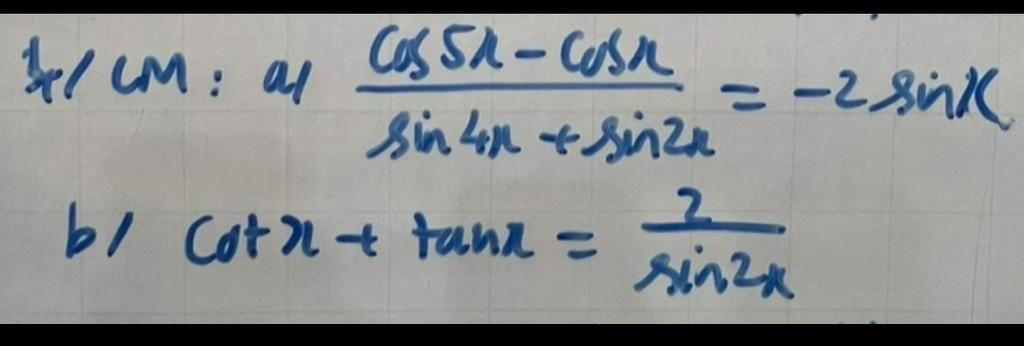 1/ CM: a/ \frac{cos5x - cosx}{sin4x + sin2x} = -2 sinx
b/ cotx + tanx = \frac{2}{sin2x}